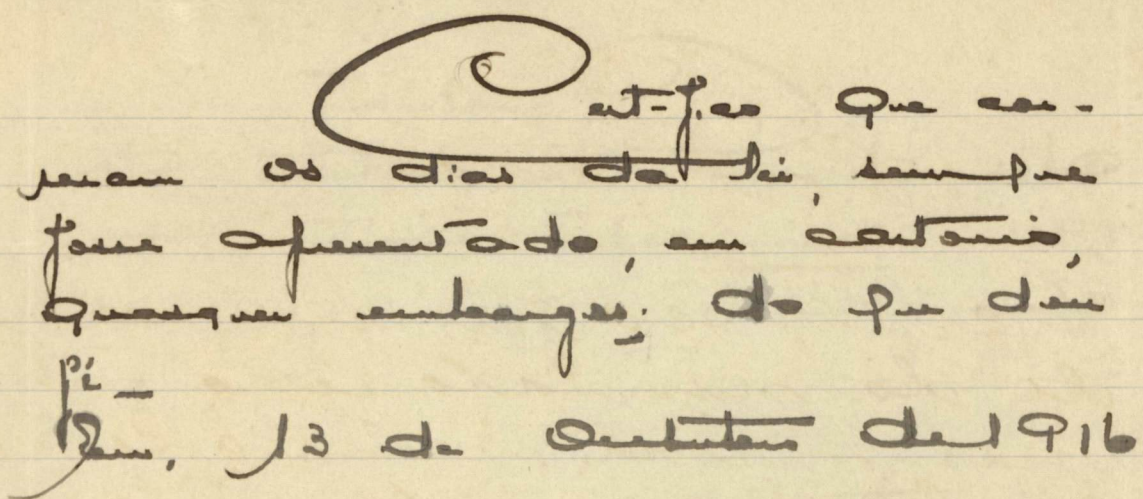 Certifico que cor-
reram os dias da lei, sem que
fosse apresentado, em cartorio,
quaesquer embargos; do que dou
fé_
13 de Outubro de 1916